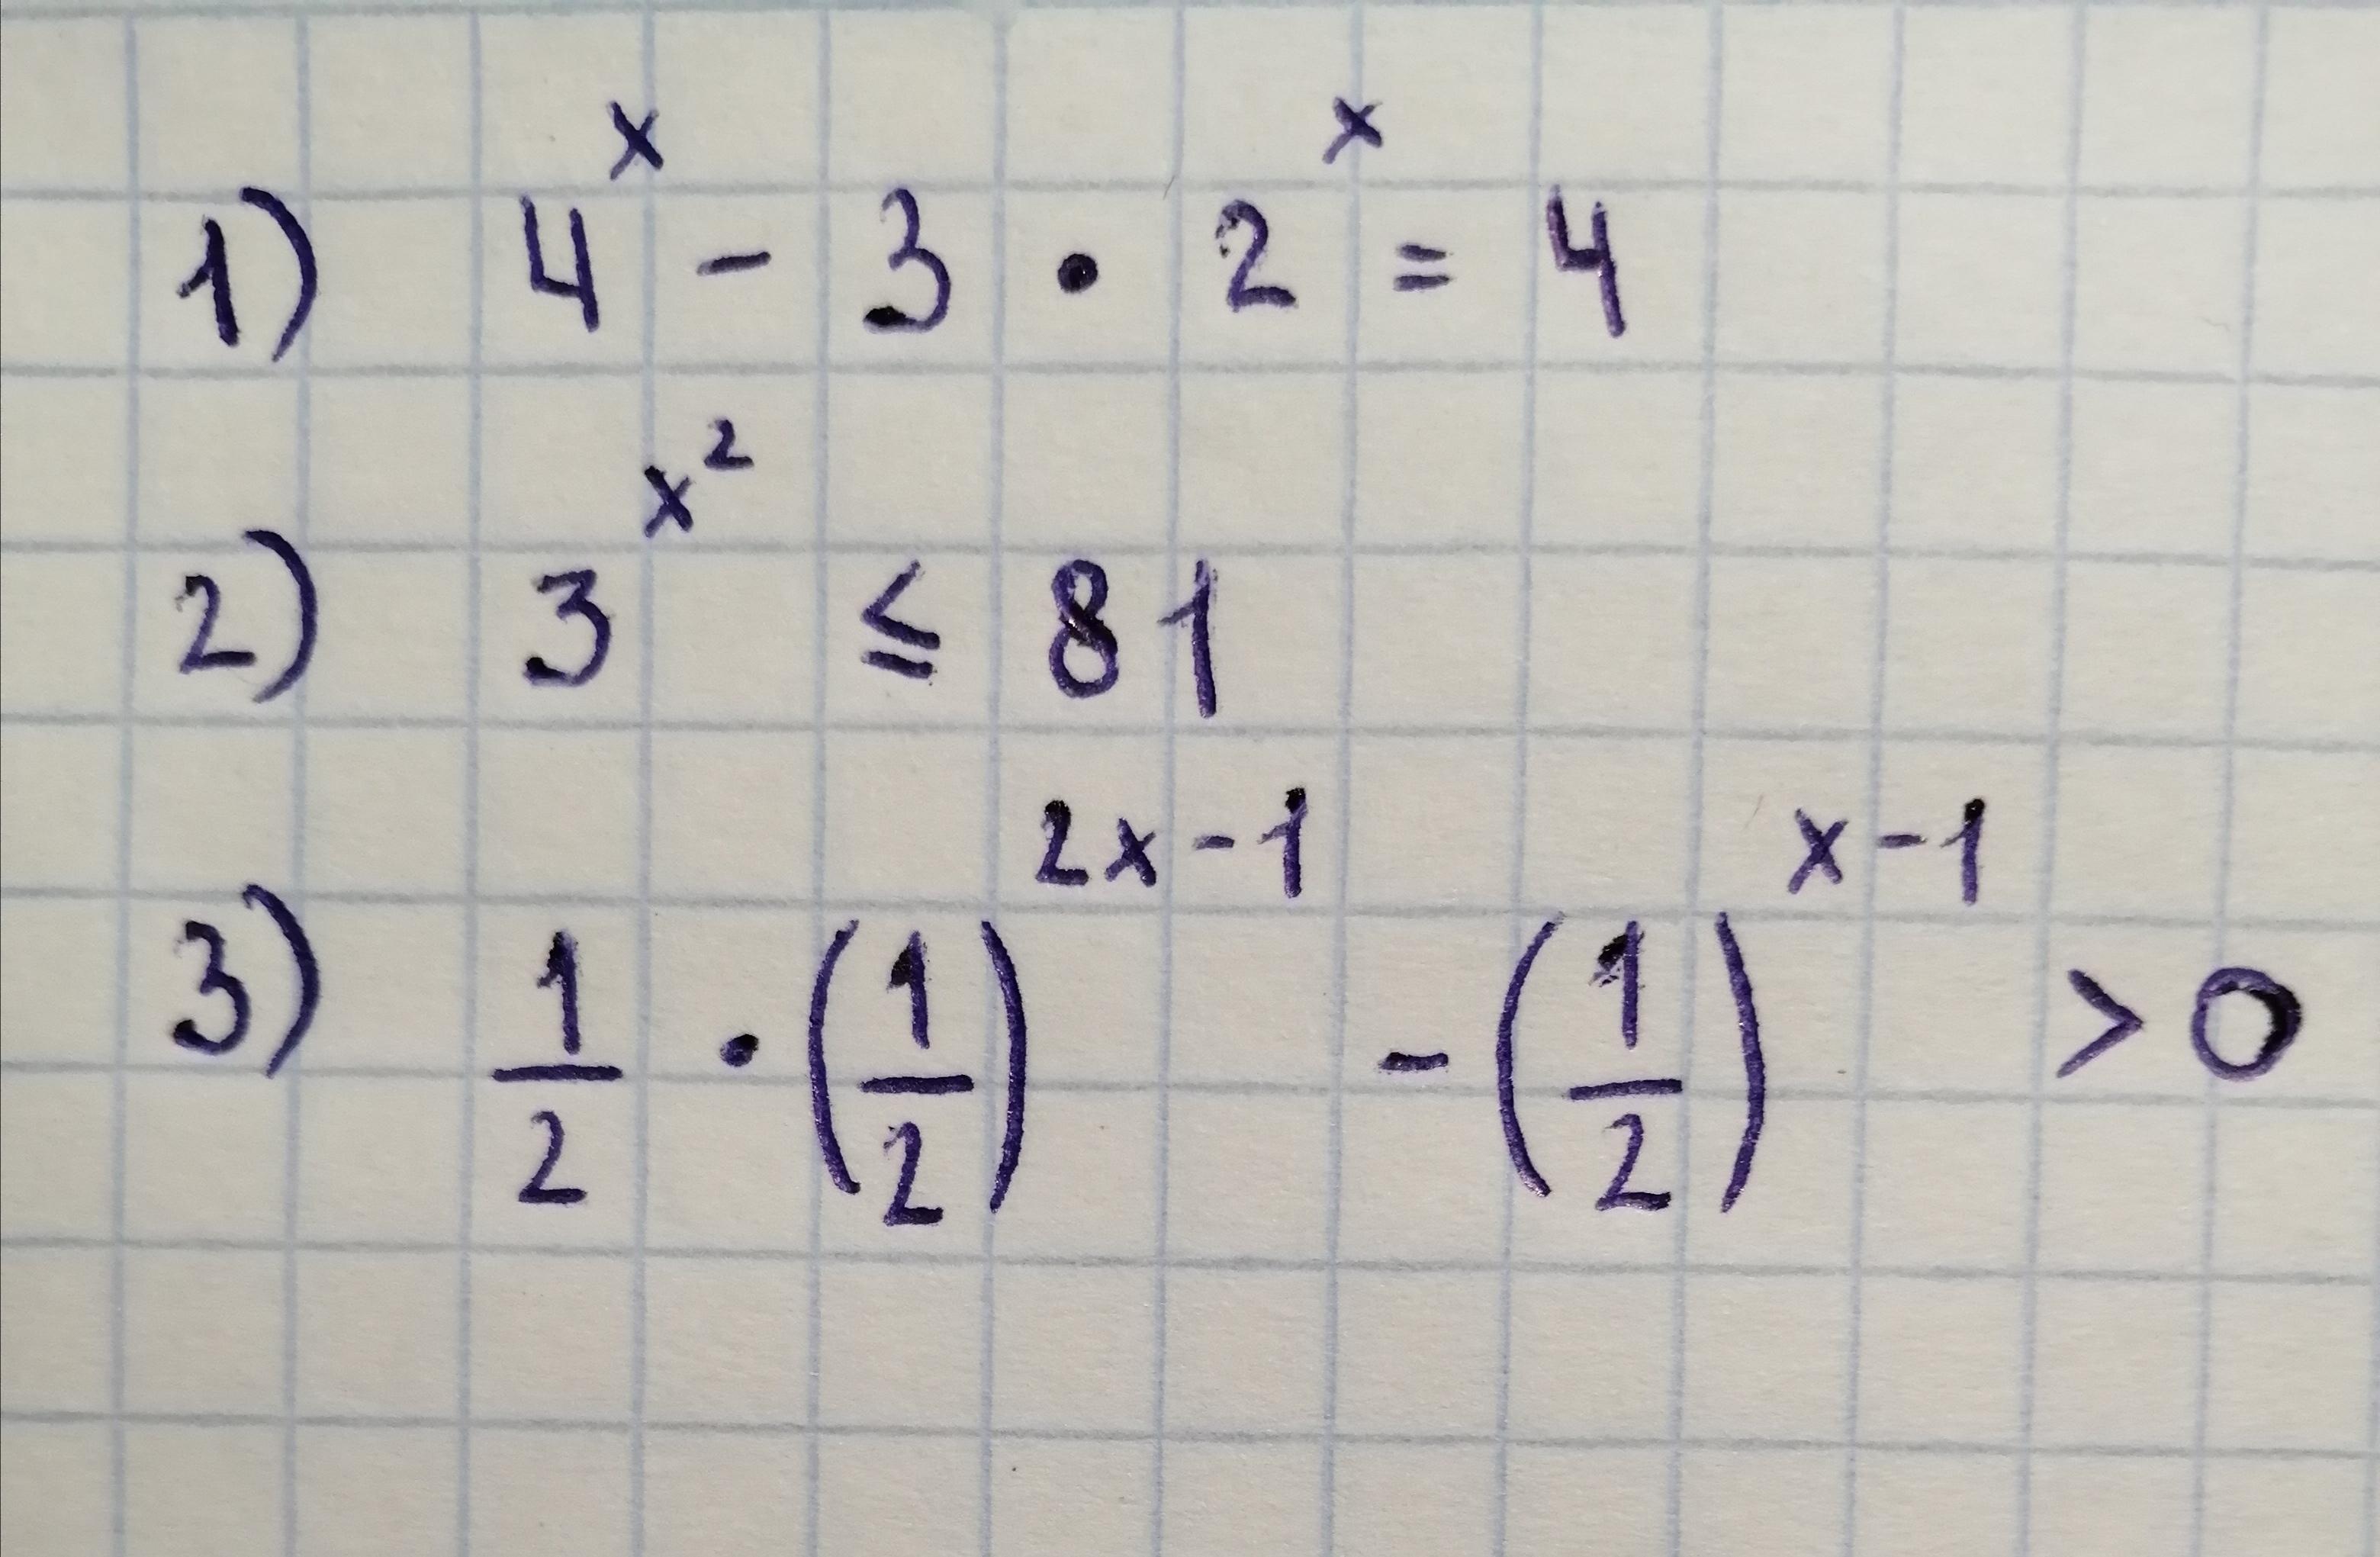 1) 4^x - 3 · 2^x = 4
2) 3^x^2 ≤ 81
3) 1/2 · (1/2)^(2x-1) - (1/2)^(x-1) > 0